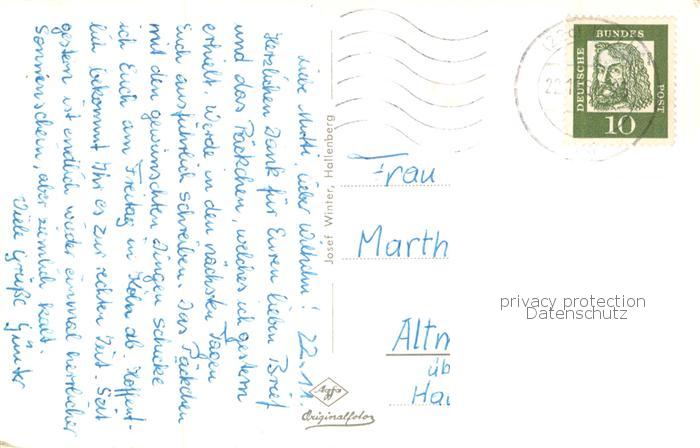 Liebe Mutti, lieber Wilhelm! 22.11.
Herzlichen Dank für Euren lieben Brief
und das Päckchen, welches ich gestern
erhielt. Werde in den nächsten Tagen
Euch ausführlich schreiben. Das Päckchen
mit den gewünschten Dingen schicke
ich Euch am Freitag in Köln ab. Hoffent-
lich bekommt Ihr es zur rechten Zeit. Seit
gestern ist endlich wieder einmal herrlicher
Sonnenschein, aber ziemlich kalt.
Viele Grüße Günter
Josef Winter, Hallenberg
Agfa
Originalfoto
DEUTSCHE BUNDES POST
10
22.1
Frau
Marth
Altn
üb
Hau
privacy protection
Datenschutz